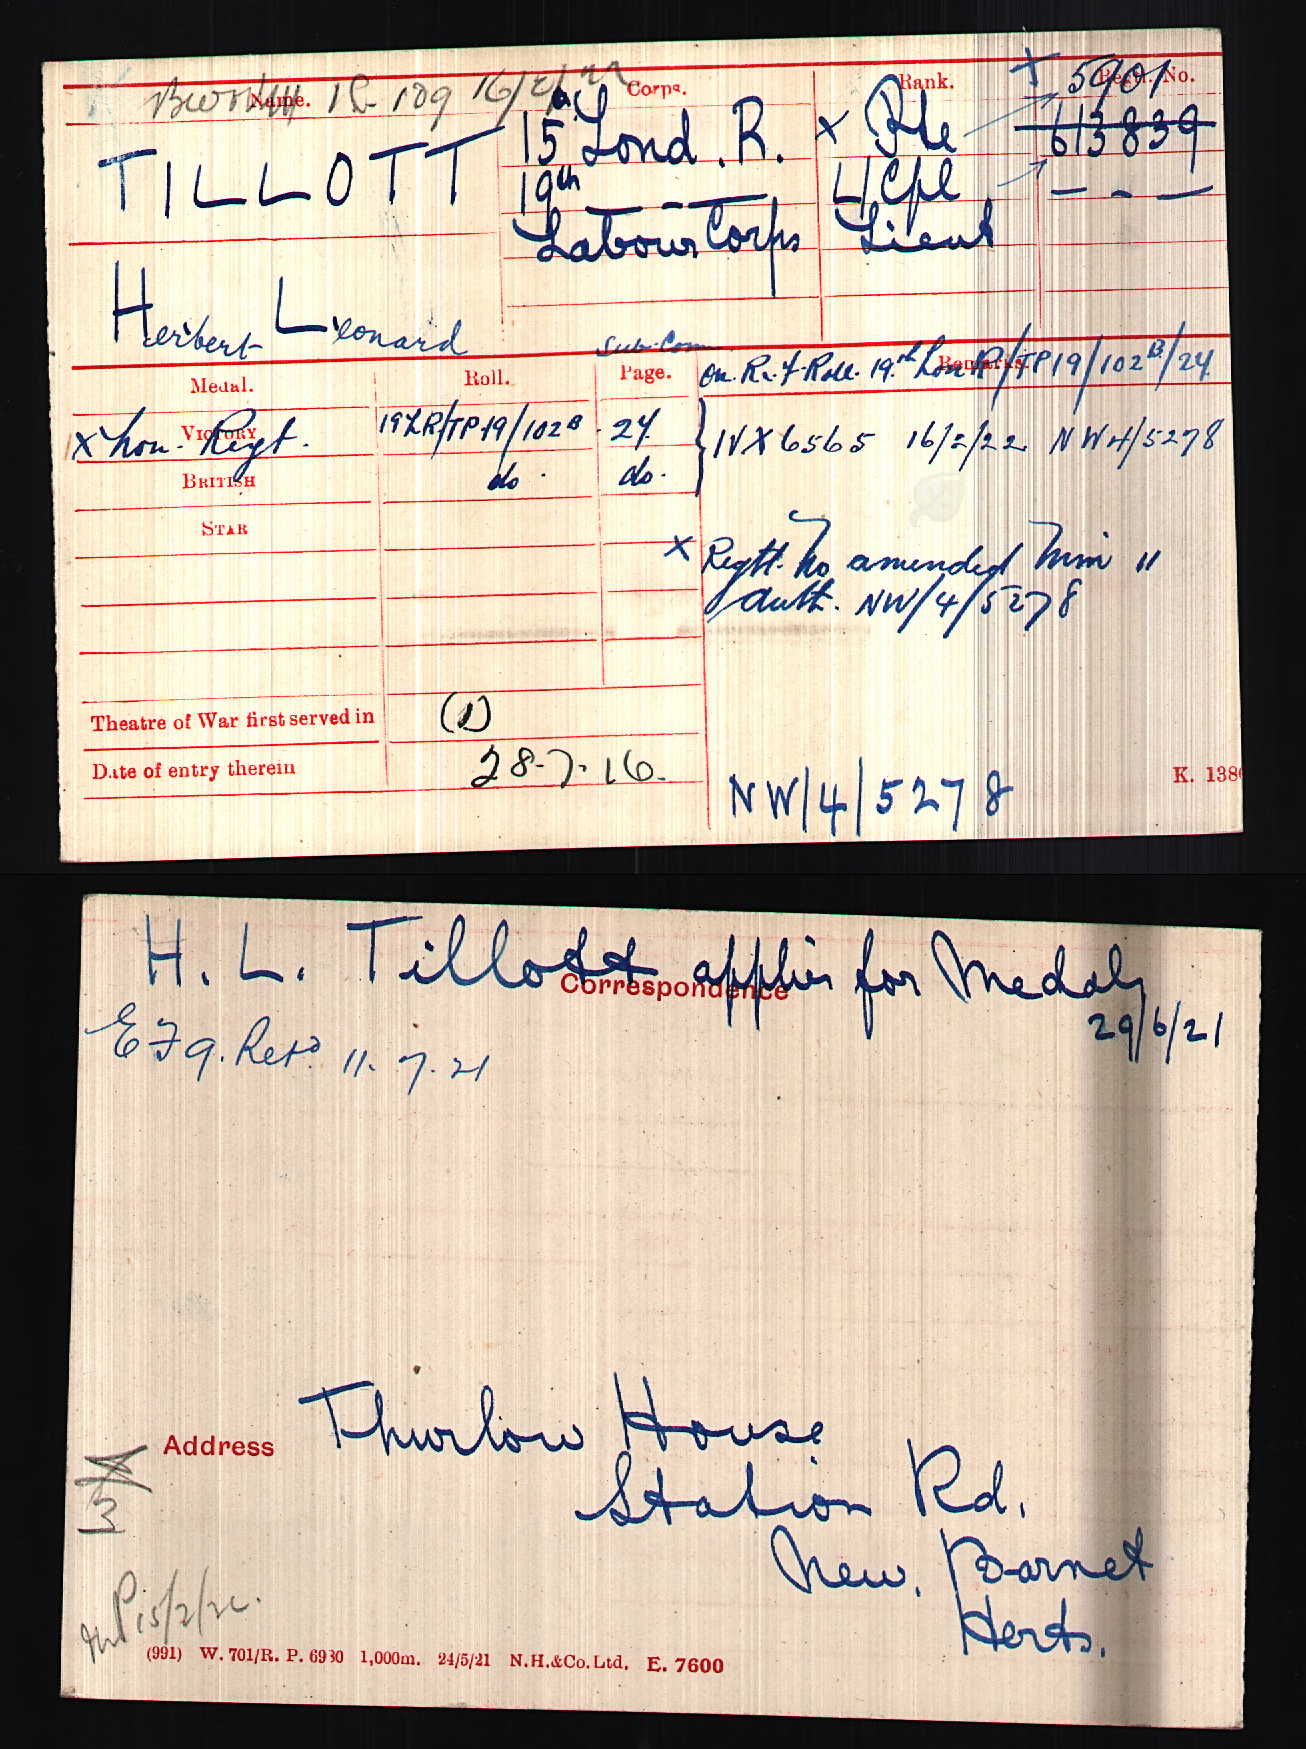 Name. 1R 109 16/2/22 Corps. Rank. Regtl. No.
5901
TILLOTT 15th Lond. R. x Pte 613839
19th — — — L/Cpl — - —
Labour Corps Lieut
Herbert Leonard
Medal. Roll. Page. on R. & F. Roll. 19th Lon R/TP19/102B/24 Remarks.
VICTORY x Lon. Regt. 19LR/TP19/102B 24 } IVX6565 16/2/22 NW4/5278
BRITISH do. do.
STAR
x Regtl. No amended Min "
Auth. NW/4/5278
Theatre of War first served in (1)
Date of entry therein 28-7-16.
NW/4/5278
K. 1380
H. L. Tillott applies for Medals
Correspondence
29/6/21
EF9. Retd 11.7.21
Address Thurlow House
Station Rd.
New. Barnet
Herts.
15/2/22.
(991) W. 701/R. P. 6930 1,000m. 24/5/21 N.H.&Co. Ltd. E. 7600